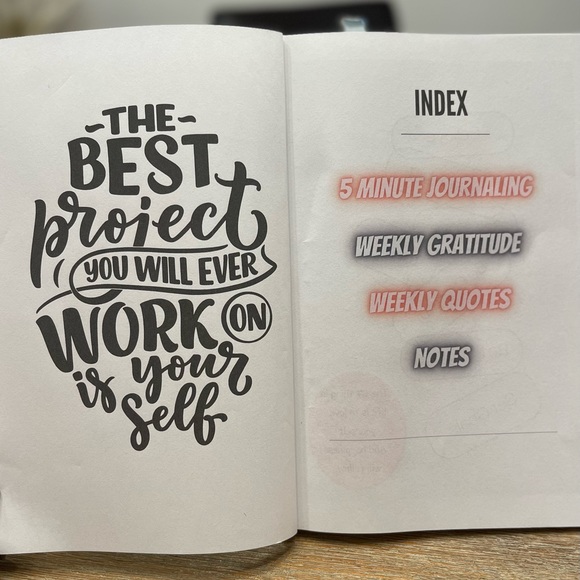 ~THE~
BEST
project
YOU WILL EVER
WORK ON
is your
self
INDEX
5 MINUTE JOURNALING
WEEKLY GRATITUDE
WEEKLY QUOTES
NOTES